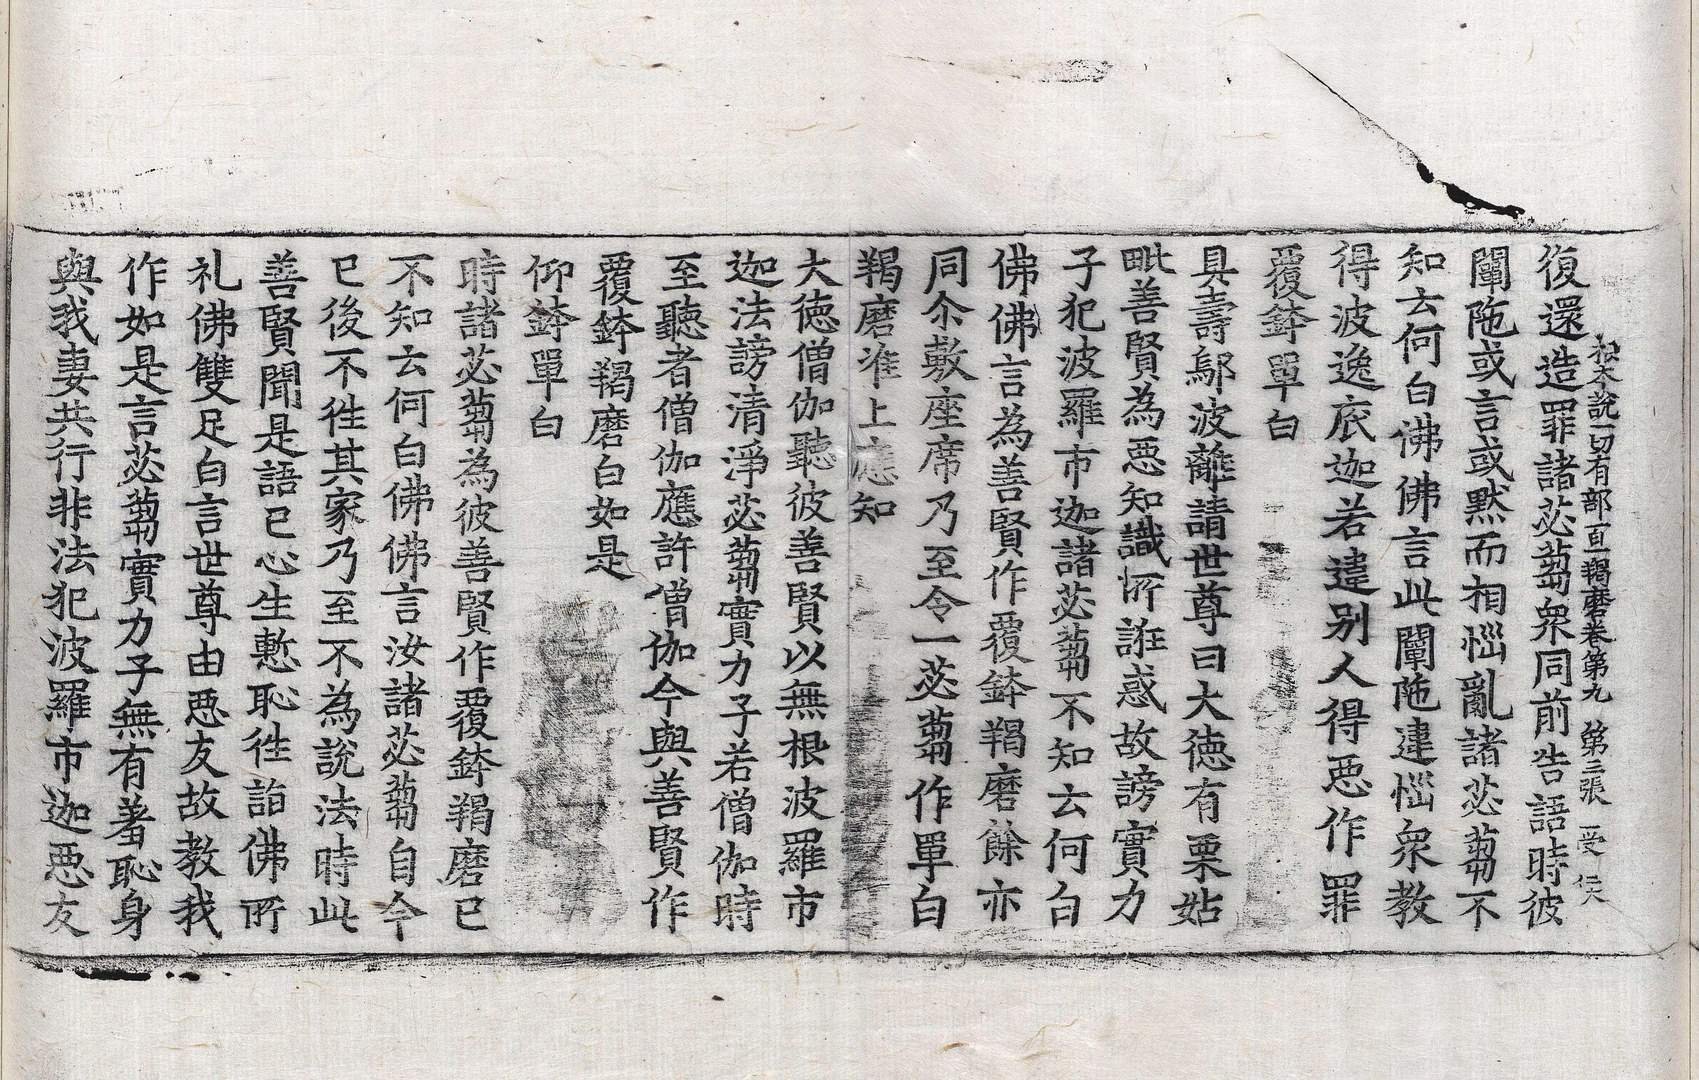 根本說一切有部百一羯磨卷第九 第三張 受
復還造罪諸苾蒭衆同前告語時彼
闡陁或言或默而相惱亂諸苾蒭不
知云何白佛佛言此闡陁違惱衆教
得波逸底迦若違别人得惡作罪
覆鉢單白
具壽鄔波離請世尊曰大德有栗姑
毗善賢為惡知識所誑惑故謗實力
子犯波羅市迦諸苾蒭不知云何白
佛佛言為善賢作覆鉢羯磨餘亦
同尒敷座席乃至令一苾蒭作單白
羯磨准上應知
大德僧伽聽彼善賢以無根波羅市
迦法謗清淨苾蒭實力子若僧伽時
至聽者僧伽應許僧伽今與善賢作
覆鉢羯磨白如是
仰鉢單白
時諸苾蒭為彼善賢作覆鉢羯磨已
不知云何白佛佛言汝諸苾蒭自今
已後不徃其家乃至不為說法時此
善賢聞是語已心生慙恥徃詣佛所
礼佛雙足白言世尊由惡友故教我
作如是言苾蒭實力子無有羞恥身
與我妻共行非法犯波羅市迦惡友